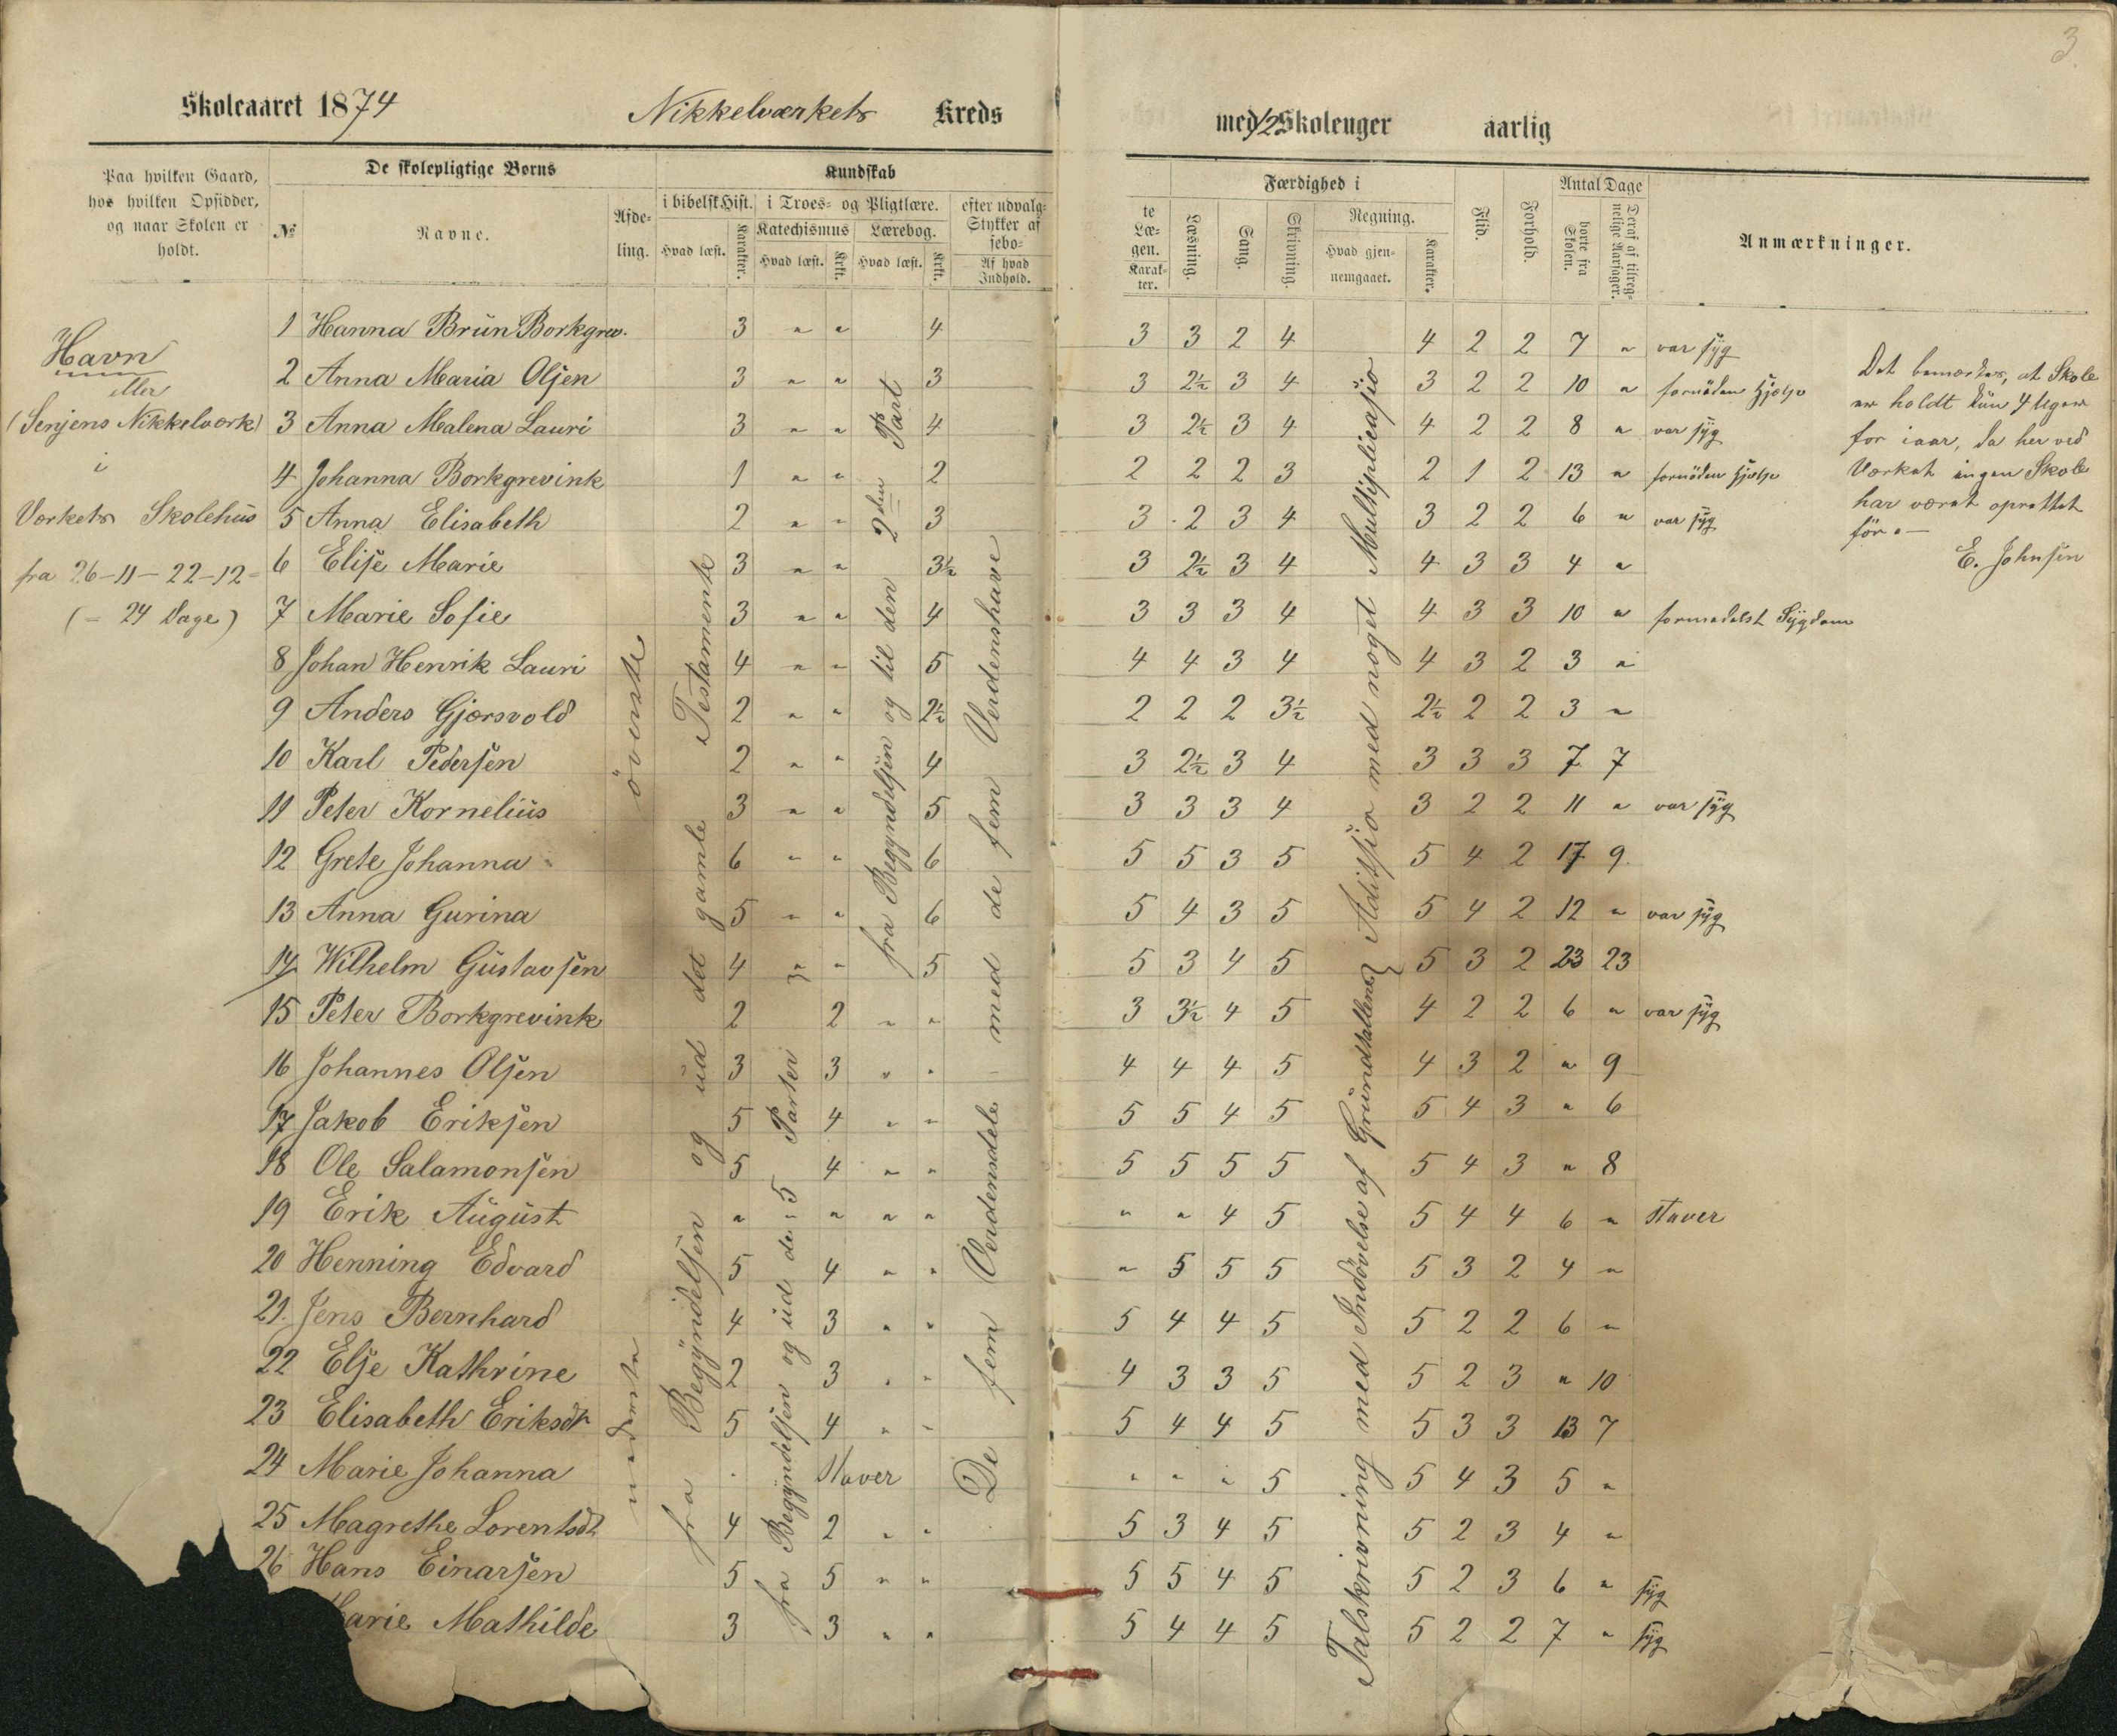 3
Skoleaaret 1874 Nikkelværkets Kreds med 12 Skoleuger aarlig
Paa hvilken Gaard,
hos hvilken Opsidder,
og naar Skolen er
holdt.
De skolepligtige Børns
№ Navne. Afde-
ling.
Kundskab
i bibelsk Hist. i Troes- og Pligtlære. efter udvalg-
Stykker af
sebo-
Hvad læst. Karakter. Katechismus Lærebog.
Hvad læst. Krkt. Hvad læst. Krkt. Af hvad
Indhold.
te
Læ-
gen.
Karak-
ter.
Færdighed i
Læsning. Sang. Skrivning. Regning.
Hvad gjen-
nemgaaet. Karakter.
Flid. Forhold. Antal Dage
borte fra
Skolen. Deraf af tilreg-
nelige Aarsager.
Anmærkninger.
Havn
eller
(Senjens Nikkelværk)
i
Værkets Skolehus
fra 26-11-22-12=
(= 24 Dage)
1 Hanna Brün Borkgrev. 3 " " 4 3 3 2 4 4 2 2 7 " var syg
2 Anna Maria Olsen 3 " " 3 3 2½ 3 4 3 2 2 10 " fornöden Hjælp
3 Anna Malena Lauri 3 " " 4 3 2½ 3 4 4 2 2 8 " var syg
4 Johanna Borkgrevink 1 " " 2 2 2 2 3 2 1 2 13 " fornöden Hjælp
5 Anna Elisabeth 2 " " 3 3 2 3 4 3 2 2 6 " var syg
6 Elise Marie 3 " " 3½ 3 2½ 3 4 4 3 3 4 "
7 Marie Sofie 3 " " 4 3 3 3 4 4 3 3 10 " formedelst Sygdom
8 Johan Henrik Lauri 4 " " 5 4 4 3 4 4 3 2 3 "
9 Anders Gjærsvold 2 " " 2½ 2 2 2 3½ 2½ 2 2 3 "
10 Karl Pedersen 2 " " 4 3 2½ 3 4 3 3 3 7 7
11 Peter Kornelius 3 " " 5 3 3 3 4 3 2 2 11 " var syg
12 Grete Johanna 6 " " 6 5 5 3 5 5 4 2 17 9
13 Anna Gurina 5 " " 6 5 4 3 5 5 4 2 12 " var syg
14 Wilhelm Gustavsen 4 " " 5 5 3 4 5 5 3 2 23 23
15 Peter Borkgrevink 2 2 " " 3 3½ 4 5 4 2 2 6 " var syg
16 Johannes Olsen 3 3 " " 4 4 4 5 4 3 2 " 9
17 Jakob Eriksen 5 4 " " 5 5 4 5 5 4 3 " 6
18 Ole Salamonsen 5 4 " " 5 5 5 5 5 4 3 " 8
19 Erik August " " " " " " 4 5 5 4 4 6 " staver
20 Henning Edvard 5 4 " " " 5 5 5 5 3 2 4 "
21. Jens Bernhard 4 3 " " 5 4 4 5 5 2 2 6 "
22 Else Kathrine 2 3 " " 4 3 3 5 5 2 3 " 10
23 Elisabeth Eriksdt 5 4 " " 5 4 4 5 5 3 3 13 7
24 Marie Johanna " staver " " " 5 5 4 3 5 "
25 Magrethe Lorentsdt 4 2 " " 5 3 4 5 5 2 3 4 "
26 Hans Einarsen 5 5 " " 5 5 4 5 5 2 3 6 " syg
Marie Mathilde 3 3 " " 5 4 4 5 5 2 2 7 " syg
överste
nederste
fra Begyndelsen og ud det gamle Testamente
fra Begyndelsen og ud den 5 Parter
fra Begyndelsen og til den 2den Part
De fem Verdensdele med de fem Verdenshave
Talskrivning med Indövelse af Grundtallene} Aditsjio med noget Multiplicasjio
Det bemærkes, at Skole
er holdt kun 4 Uger
for iaar, da her ved
Værket ingen Skole
har været oprettet
för.—
E. Johnsen